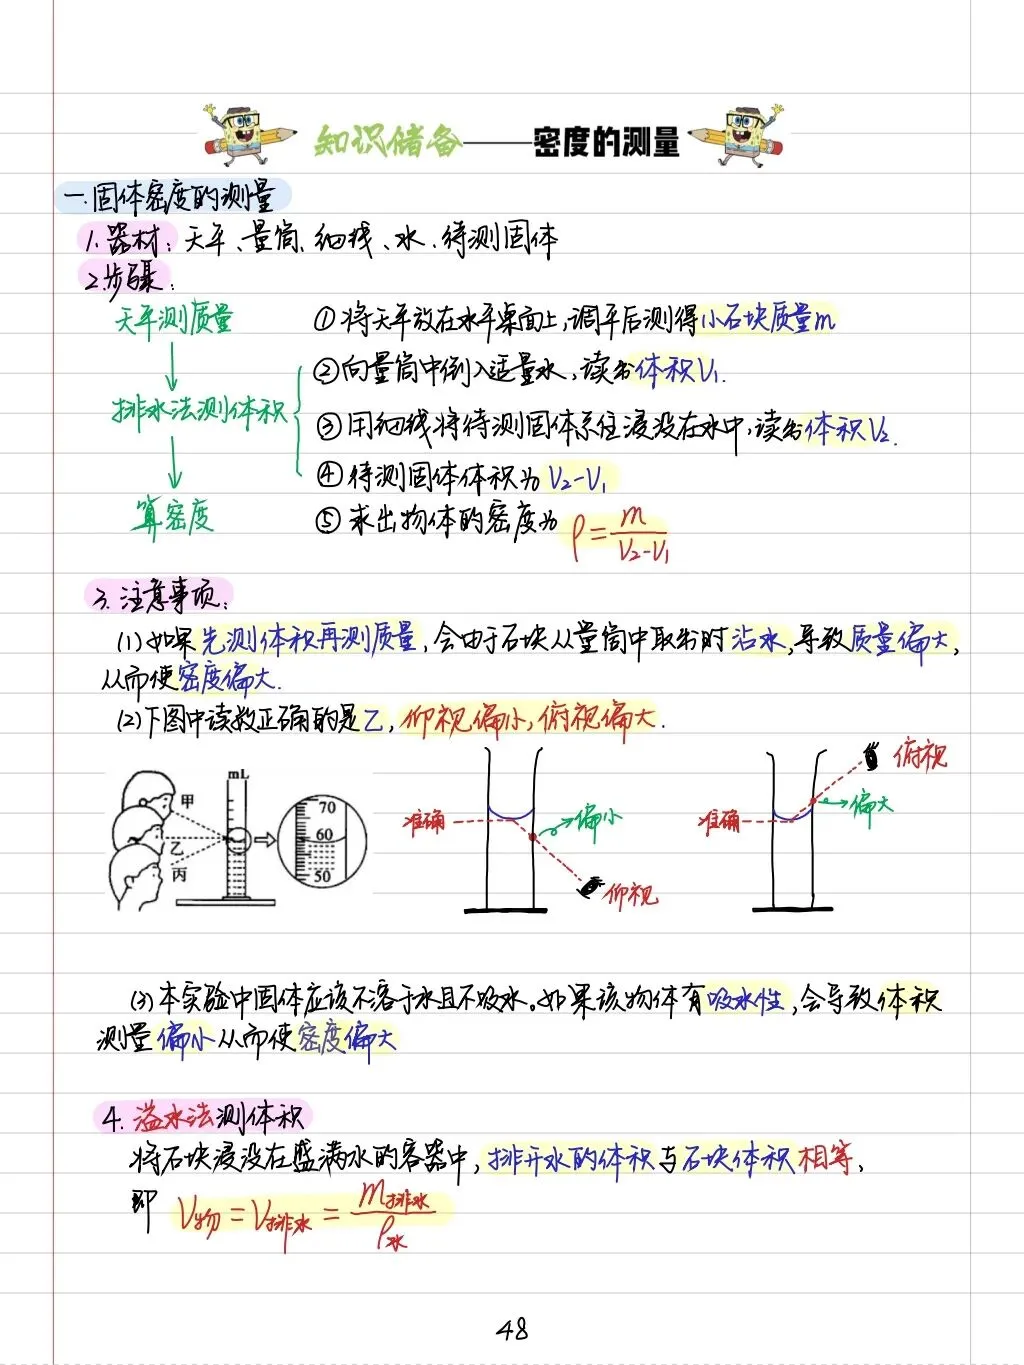 知识储备——密度的测量
一.固体密度的测量
1.器材：天平、量筒、细线、水、待测固体
2.步骤：
天平测质量
①将天平放在水平桌面上,调平后测得小石块质量m
②向量筒中倒入适量水,读出体积V₁.
排水法测体积
③用细线将待测固体系住浸没在水中,读出体积V₂.
④待测固体体积为V₂-V₁
算密度
⑤求出物体的密度为 ρ=m/(V₂-V₁)
3.注意事项：
(1)如果先测体积再测质量,会由于石块从量筒中取出时沾水,导致质量偏大,
从而使密度偏大.
(2)下图中读数正确的是乙,仰视偏小,俯视偏大.
mL
甲
乙
丙
70
60
50
准确
偏小
仰视
准确
俯视
偏大
(3)本实验中固体应该不溶于水且不吸水。如果该物体有吸水性,会导致体积
测量偏小从而使密度偏大
4.溢水法测体积
将石块浸没在盛满水的容器中,排开水的体积与石块体积相等,
即 V物=V排水=m排水/ρ水
48